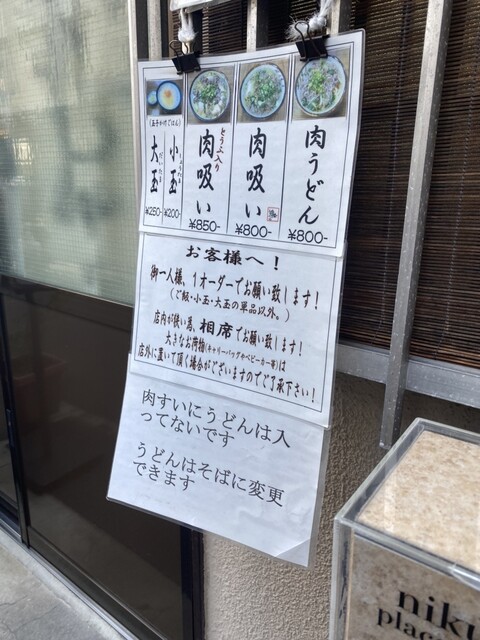 肉うどん
¥800-
肉吸い
¥800-
とうふ入り
肉吸い
¥850-
(玉子かけごはん)
小玉
¥200-
大玉
¥250-
お客様へ！
御一人様、1オーダーでお願い致します！
(ご飯・小玉・大玉の単品以外。)
店内が狭い為、相席でお願い致します！
大きなお荷物(キャリーバッグやベビーカー等)は
店外に置いて頂く場合がございますのでご了承下さい！
肉すいにうどんは入
ってないです
うどんはそばに変更
できます
niku
pla